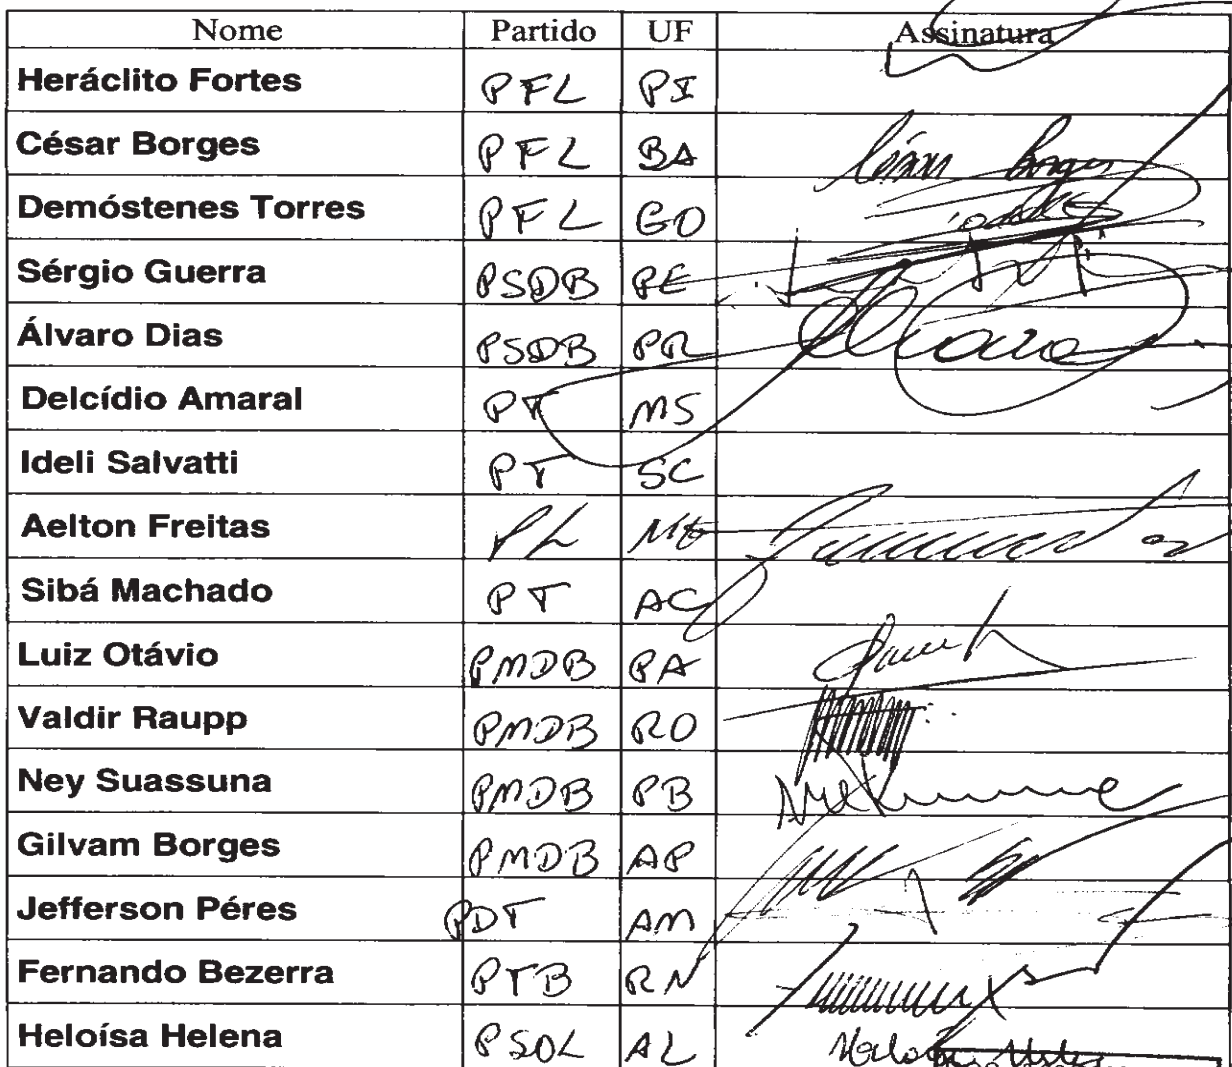 Nome Partido UF Assinatura
Heráclito Fortes PFL PI
César Borges PFL BA César Borges
Demóstenes Torres PFL GO
Sérgio Guerra PSDB PE
Álvaro Dias PSDB PR Alvaro
Delcídio Amaral PT MS
Ideli Salvatti PT SC
Aelton Freitas PL MG
Sibá Machado PT AC
Luiz Otávio PMDB PA
Valdir Raupp PMDB RO
Ney Suassuna PMDB PB
Gilvam Borges PMDB AP
Jefferson Péres PDT AM
Fernando Bezerra PTB RN
Heloísa Helena PSOL AL Heloísa Helena